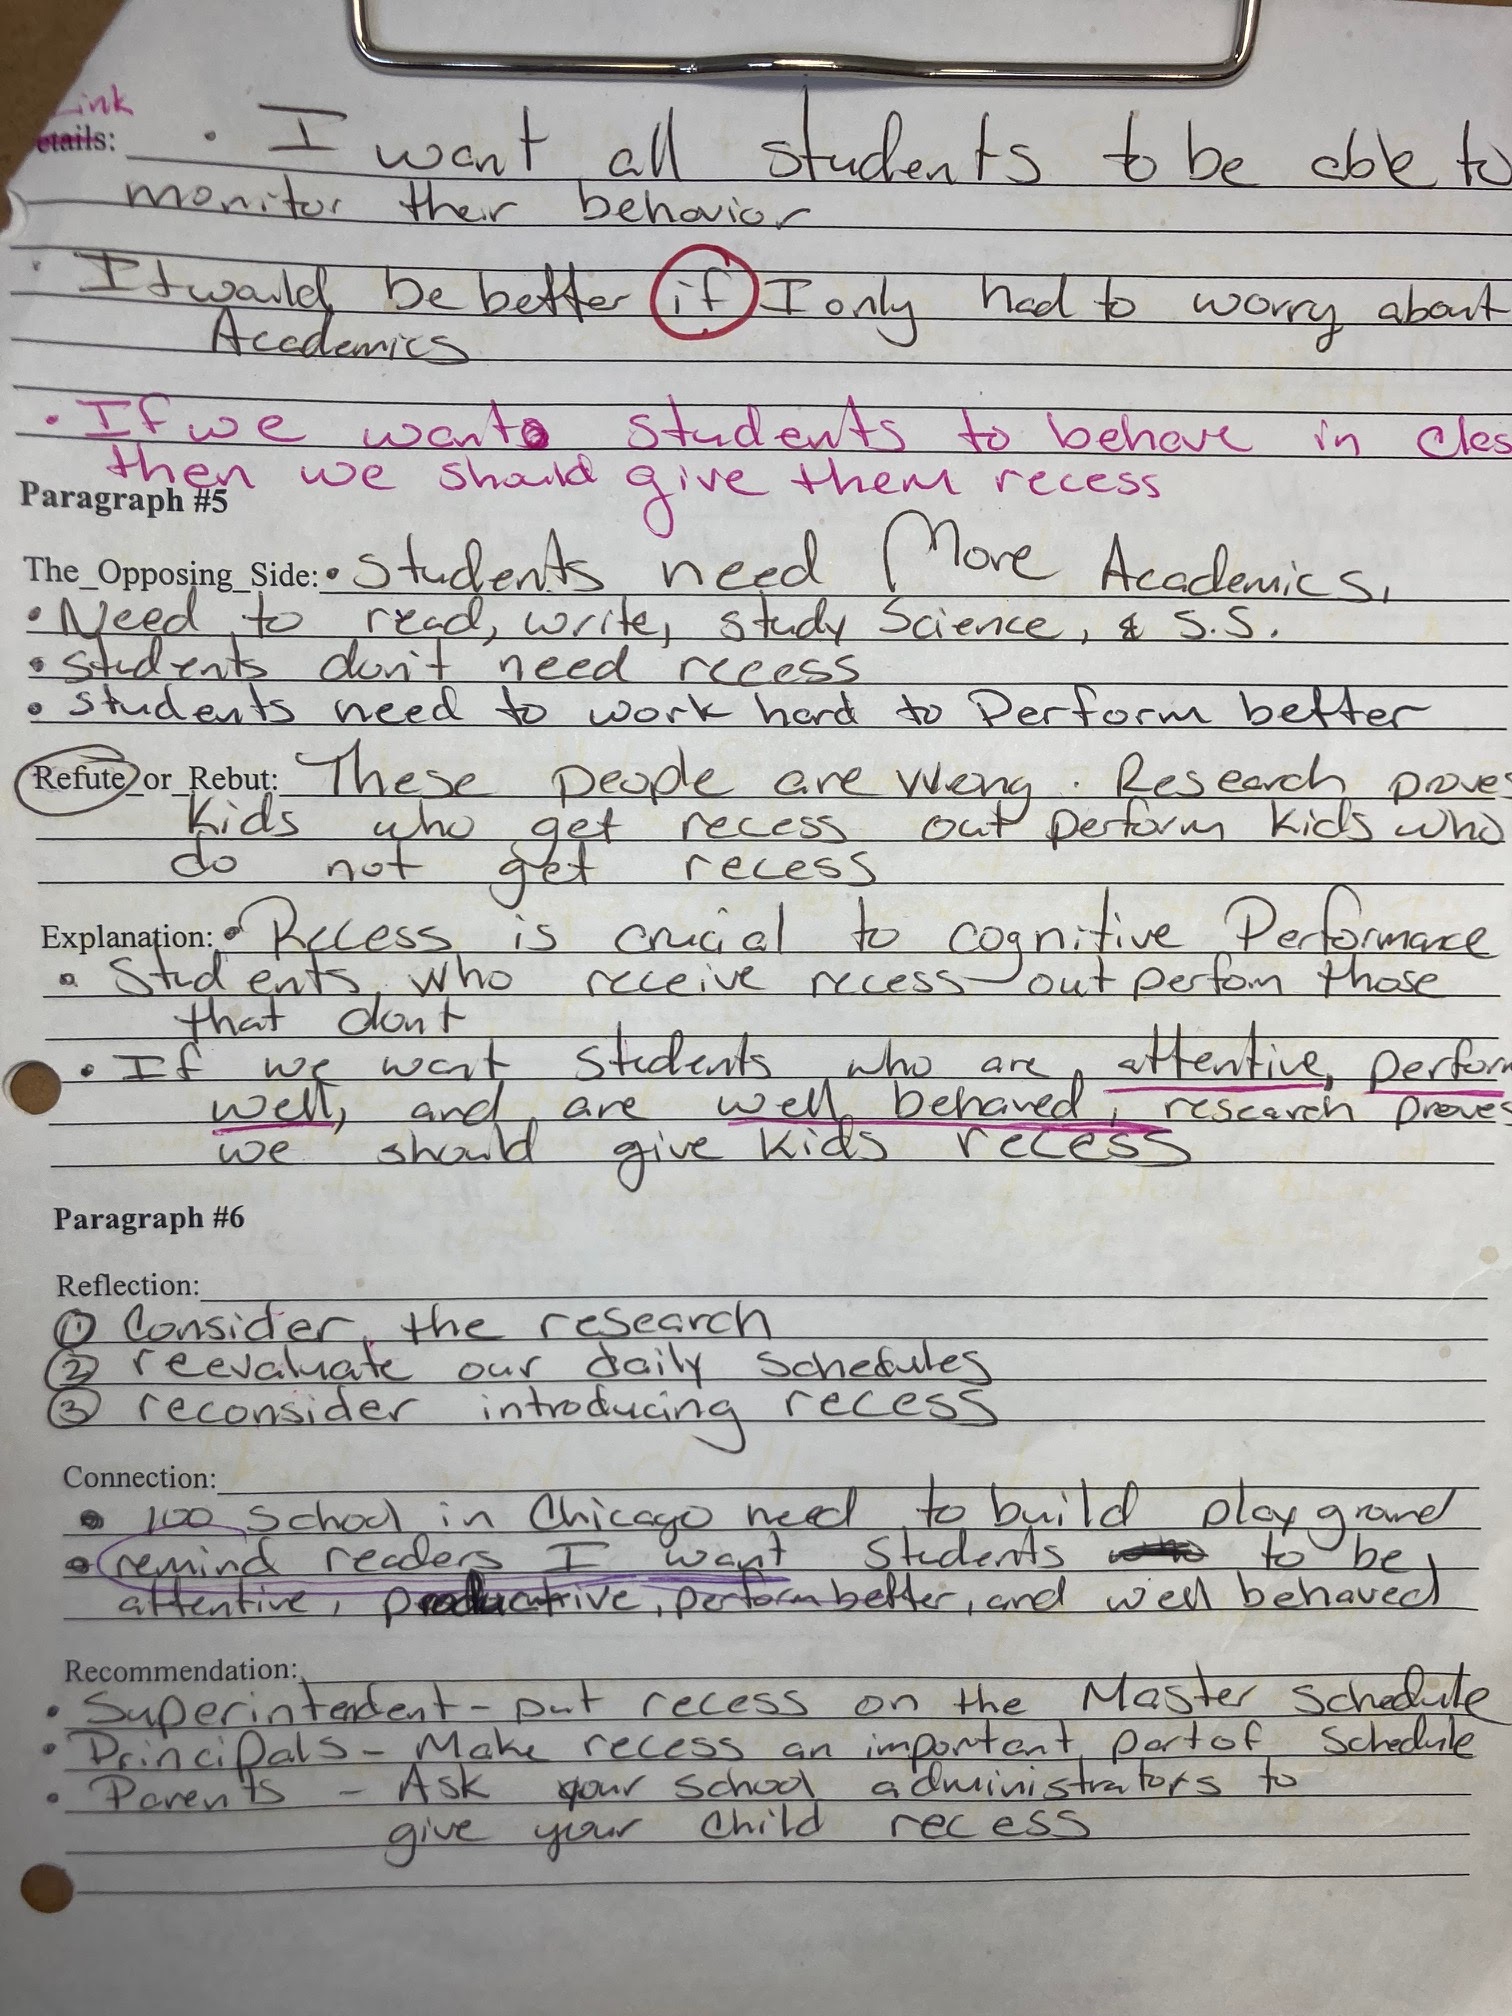 Link
etails: • I want all students to be able to
monitor their behavior
• It would be better if I only had to worry about
Academics
• If we want students to behave in clas
then we should give them recess
Paragraph #5
The_Opposing_Side: • Students need More Academics,
• Need to read, write, study Science, & S.S.
• students don't need recess
• students need to work hard to Perform better
Refute_or_Rebut: These people are wrong. Research proves
kids who get recess out perform kids who
do not get recess
Explanation: • Recess is crucial to cognitive Performance
• Students who receive recess out perfom those
that dont
• If we want students who are attentive, perform
well, and are well behaved, research proves
we should give kids recess
Paragraph #6
Reflection:
① Consider the research
② reevaluate our daily schedules
③ reconsider introducing recess
Connection:
• 100 School in Chicago need to build playground
• remind readers I want students to be
attentive, productive, perform better, and well behaved
Recommendation:
• Superintendent - put recess on the Master Schedule
• Principals - Make recess an important part of schedule
• Parents - Ask your school administrators to
give your child recess